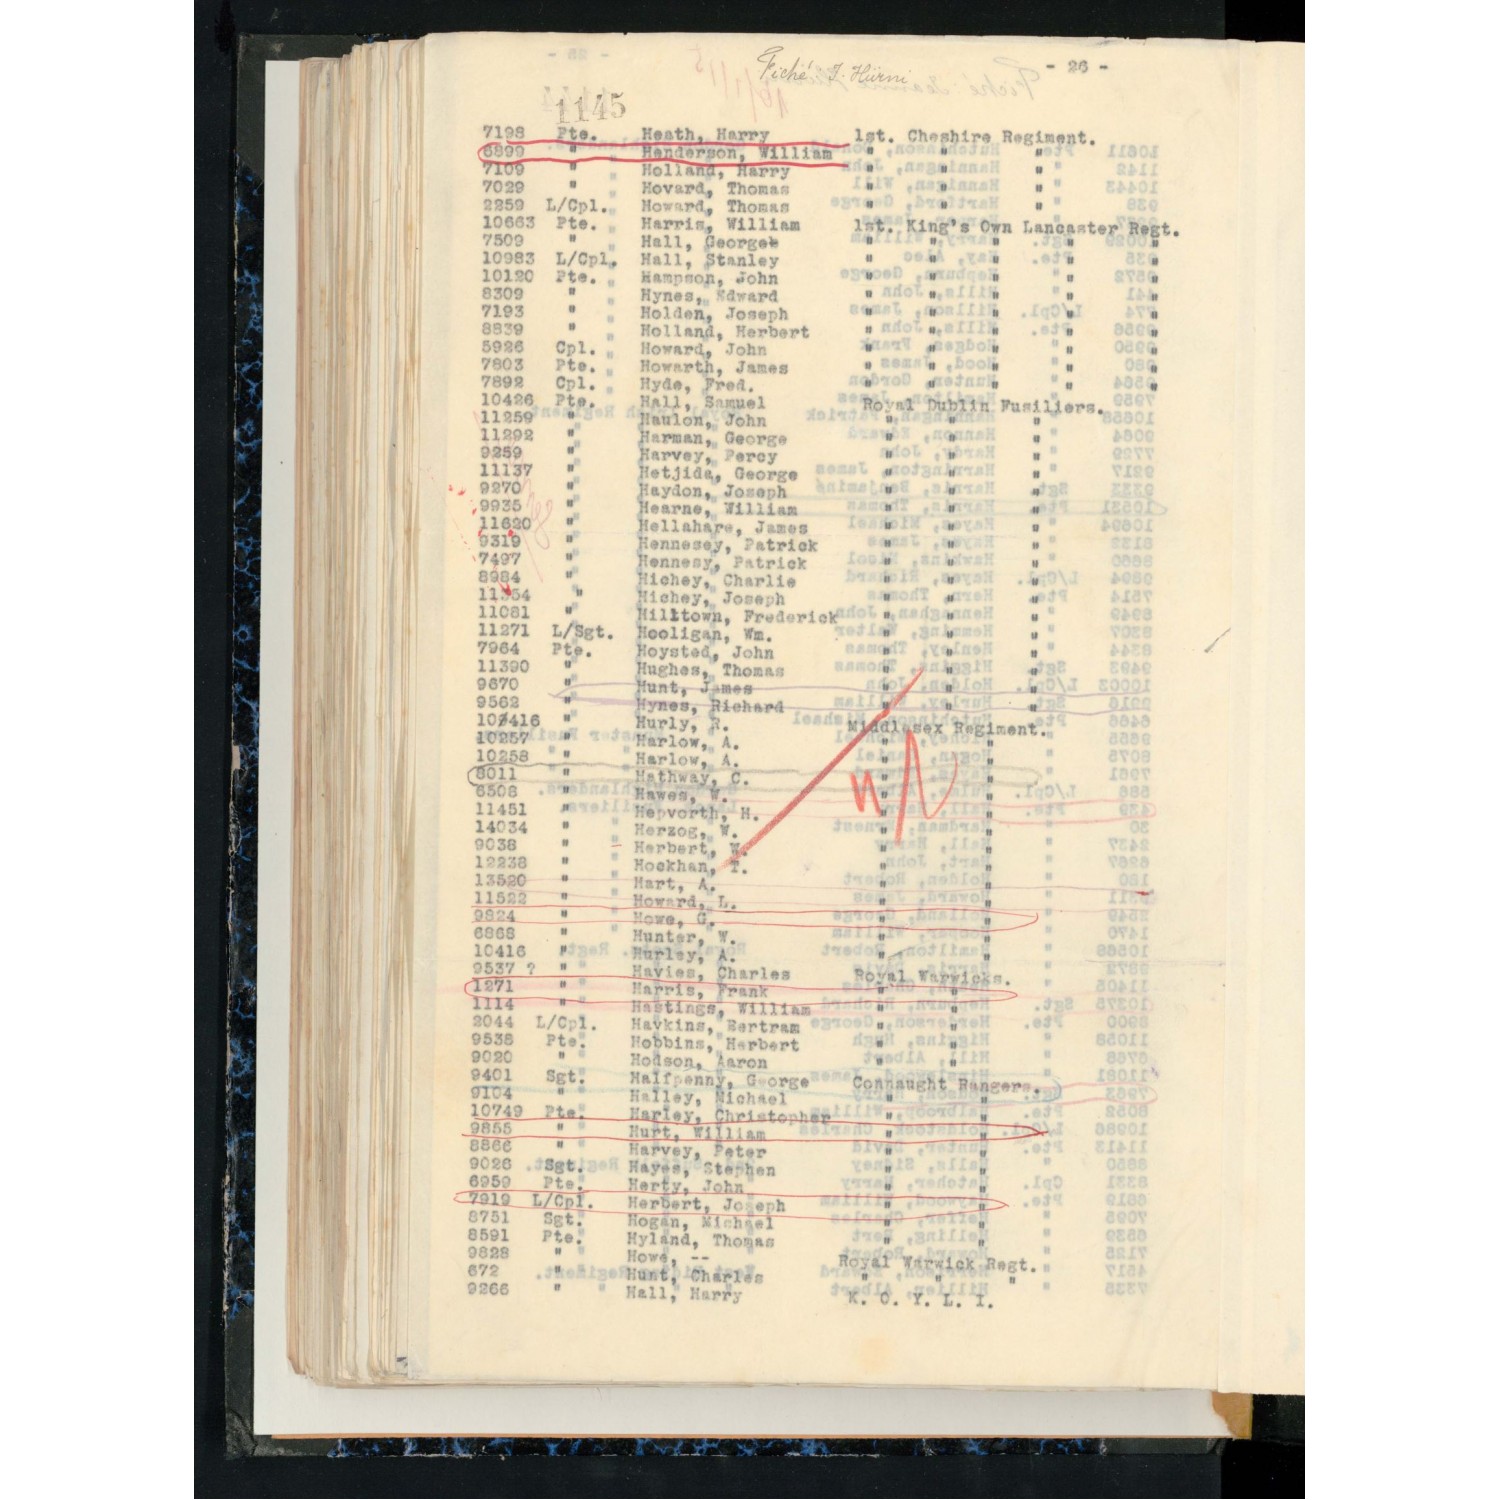 Fiché J. Hürni
- 26 -
1145
7198 Pte. Heath, Harry 1st. Cheshire Regiment.
6899 " Henderson, William " " "
7109 " Holland, Harry " " "
7029 " Hovard, Thomas " " "
2259 L/Cpl. Howard, Thomas " " "
10663 Pte. Harris, William 1st. King's Own Lancaster Regt.
7509 " Hall, George " " " " "
10983 L/Cpl. Hall, Stanley " " " " "
10120 Pte. Hampson, John " " " " "
8309 " Hynes, Edward " " " " "
7193 " Holden, Joseph " " " " "
8839 " Holland, Herbert " " " " "
5926 Cpl. Howard, John " " " " "
7803 Pte. Howarth, James " " " " "
7892 Cpl. Hyde, Fred. " " " " "
10426 Pte. Hall, Samuel Royal Dublin Fusiliers.
11259 " Haulon, John " " "
11292 " Harman, George " " "
9259 " Harvey, Percy " " "
11137 " Hetjida, George " " "
9270 " Haydon, Joseph " " "
9935 " Hearne, William " " "
11620 " Hellahare, James " " "
9319 " Hennesey, Patrick " " "
7497 " Hennesy, Patrick " " "
8984 " Hichey, Charlie " " "
11354 " Hichey, Joseph " " "
11081 " Milltown, Frederick " " "
11271 L/Sgt. Hooligan, Wm. " " "
7964 Pte. Hoysted, John " " "
11390 " Hughes, Thomas " " "
9670 " Hunt, James " " "
9562 " Hynes, Richard " " "
10416 " Hurly, R. Middlesex Regiment.
10257 " Harlow, A. " "
10258 " Harlow, A. " "
8011 " Hathway, C. " "
6508 " Hawes, W. " "
11451 " Hepvorth, H. " "
14034 " Herzog, W. " "
9038 " Herbert, W. " "
12238 " Hockhan, T. " "
13520 " Hart, A. " "
11522 " Howard, L. " "
9824 " Howe, G. " "
6868 " Hunter, W. " "
10416 " Hurley, A. " "
9537 ? " Havies, Charles Royal Warwicks.
1271 " Harris, Frank " "
1114 " Hastings, William " "
2044 L/Cpl. Havkins, Bertram " "
9538 Pte. Hobbins, Herbert " "
9020 " Hodson, Aaron " "
9401 Sgt. Halfpenny, George Connaught Rangers.
9104 " Halley, Michael " "
10749 Pte. Harley, Christopher " "
9855 " Hurt, William " "
8866 " Harvey, Peter " "
9026 Sgt. Hayes, Stephen " "
6959 Pte. Herty, John " "
7919 L/Cpl. Herbert, Joseph " "
8751 Sgt. Hogan, Michael " "
8591 Pte. Hyland, Thomas " "
9828 " Howe, -- Royal Warwick Regt.
672 " Hunt, Charles " " "
9266 " Hall, Harry K. O. Y. L. I.